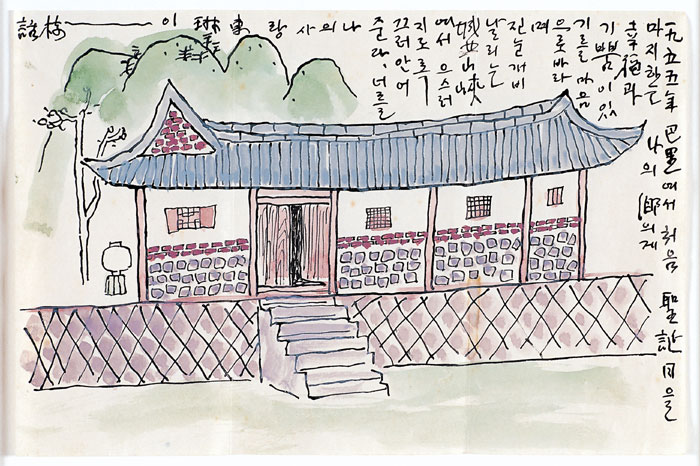 一九五五年 巴里에서 처음 聖誕日을
마지하는 나의 鄕의게
幸福과
기쁨이 있
기를 마음
으로바라
며
진눈개비
날리는
城北山峽
에서 으스러
지도록
끄러안어
준다, 너르를
나의사랑 東琳이 ——— 樹話